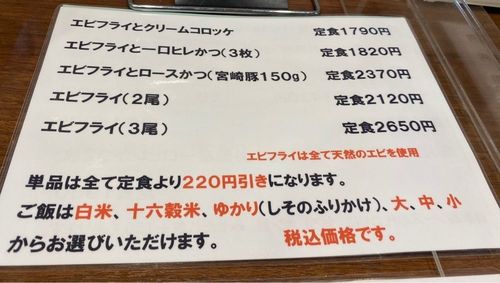 エビフライとクリームコロッケ 定食1790円
エビフライと一口ヒレかつ(3枚) 定食1820円
エビフライとロースかつ(宮崎豚150g) 定食2370円
エビフライ(2尾) 定食2120円
エビフライ(3尾) 定食2650円
エビフライは全て天然のエビを使用
単品は全て定食より220円引きになります。
ご飯は白米、十六穀米、ゆかり(しそのふりかけ)、大、中、小
からお選びいただけます。 税込価格です。